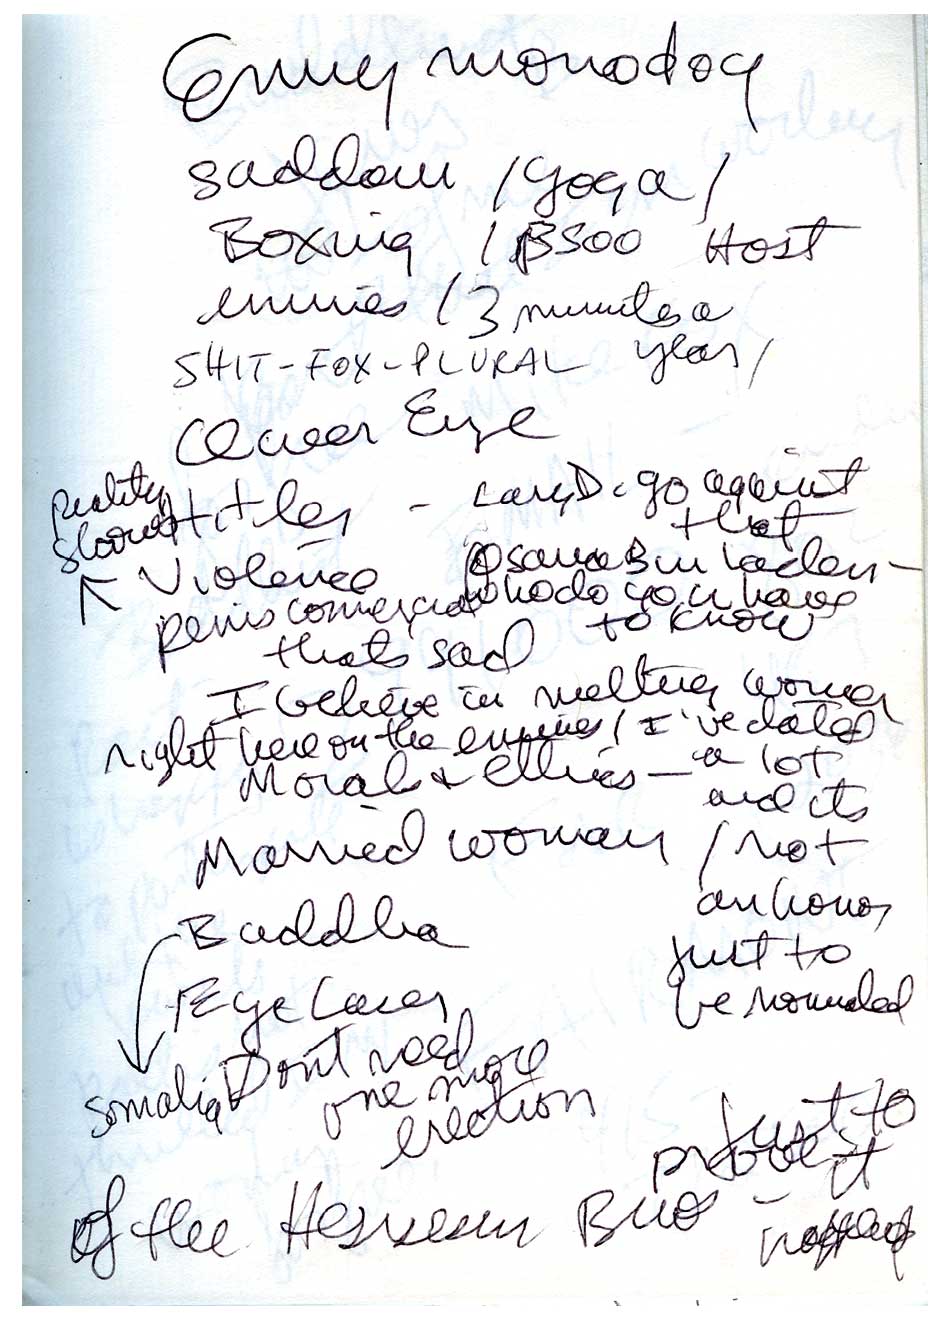 Emmy monodog
saddam / yoga /
Boxing / B500 Host
emmies / 3 minutes a
SHIT-FOX-PLURAL year /
Queer Eye
Reality
shows Hitler - Larry D. go against
that
Violence Osama Bin Laden -
penis comercial who do you have
to know
thats sad
I believe in melting woman
right here on the emmies / I've dated
Morals & ethics - a lot
and its
Married woman / not
an honor
Buddha just to
Eye Laser be nominated
Somalia Don't need
one more
erection
Just to
prove it
of the Hussein Bros -